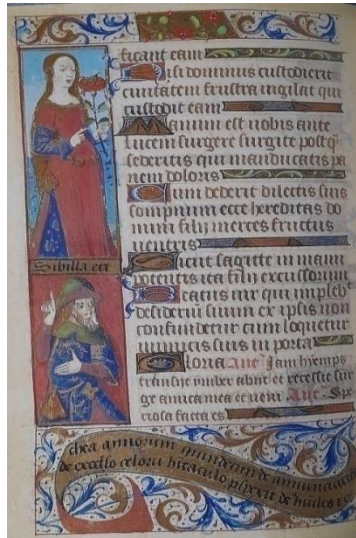 ficant eam
Nisi dominus custodierit
civitatem frustra vigilat qui
custodit eam
Vanum est vobis ante
lucem surgere surgite postq̃
sederitis qui manducatis pa
nem doloris
Cum dederit dilectis suis
sompnum ecce hereditas do
mini filij merces fructus
ventris
Sicut sagitte in manu
potentis ita filij excussorum
Beatus vir qui impleb̾t
desiderium suum ex ipsis non
confundetur cum loquetur
inimicis suis in porta
Gloria Ant̃ Jam hyemps
transijt imber abijt et recessit sur
ge amica mea et veni Ant̃ Spe
ciosa facta es
Sibilla
annorum quindecim de annunciacio
de excelso celorũ